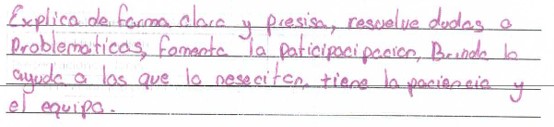 Explica de forma clara y presisa, resuelve dudas o
Problematicas, fomenta la paticipacipacion, Brinda la
ayuda a los que lo neseciten, tiene la paciencia y
el equipo.